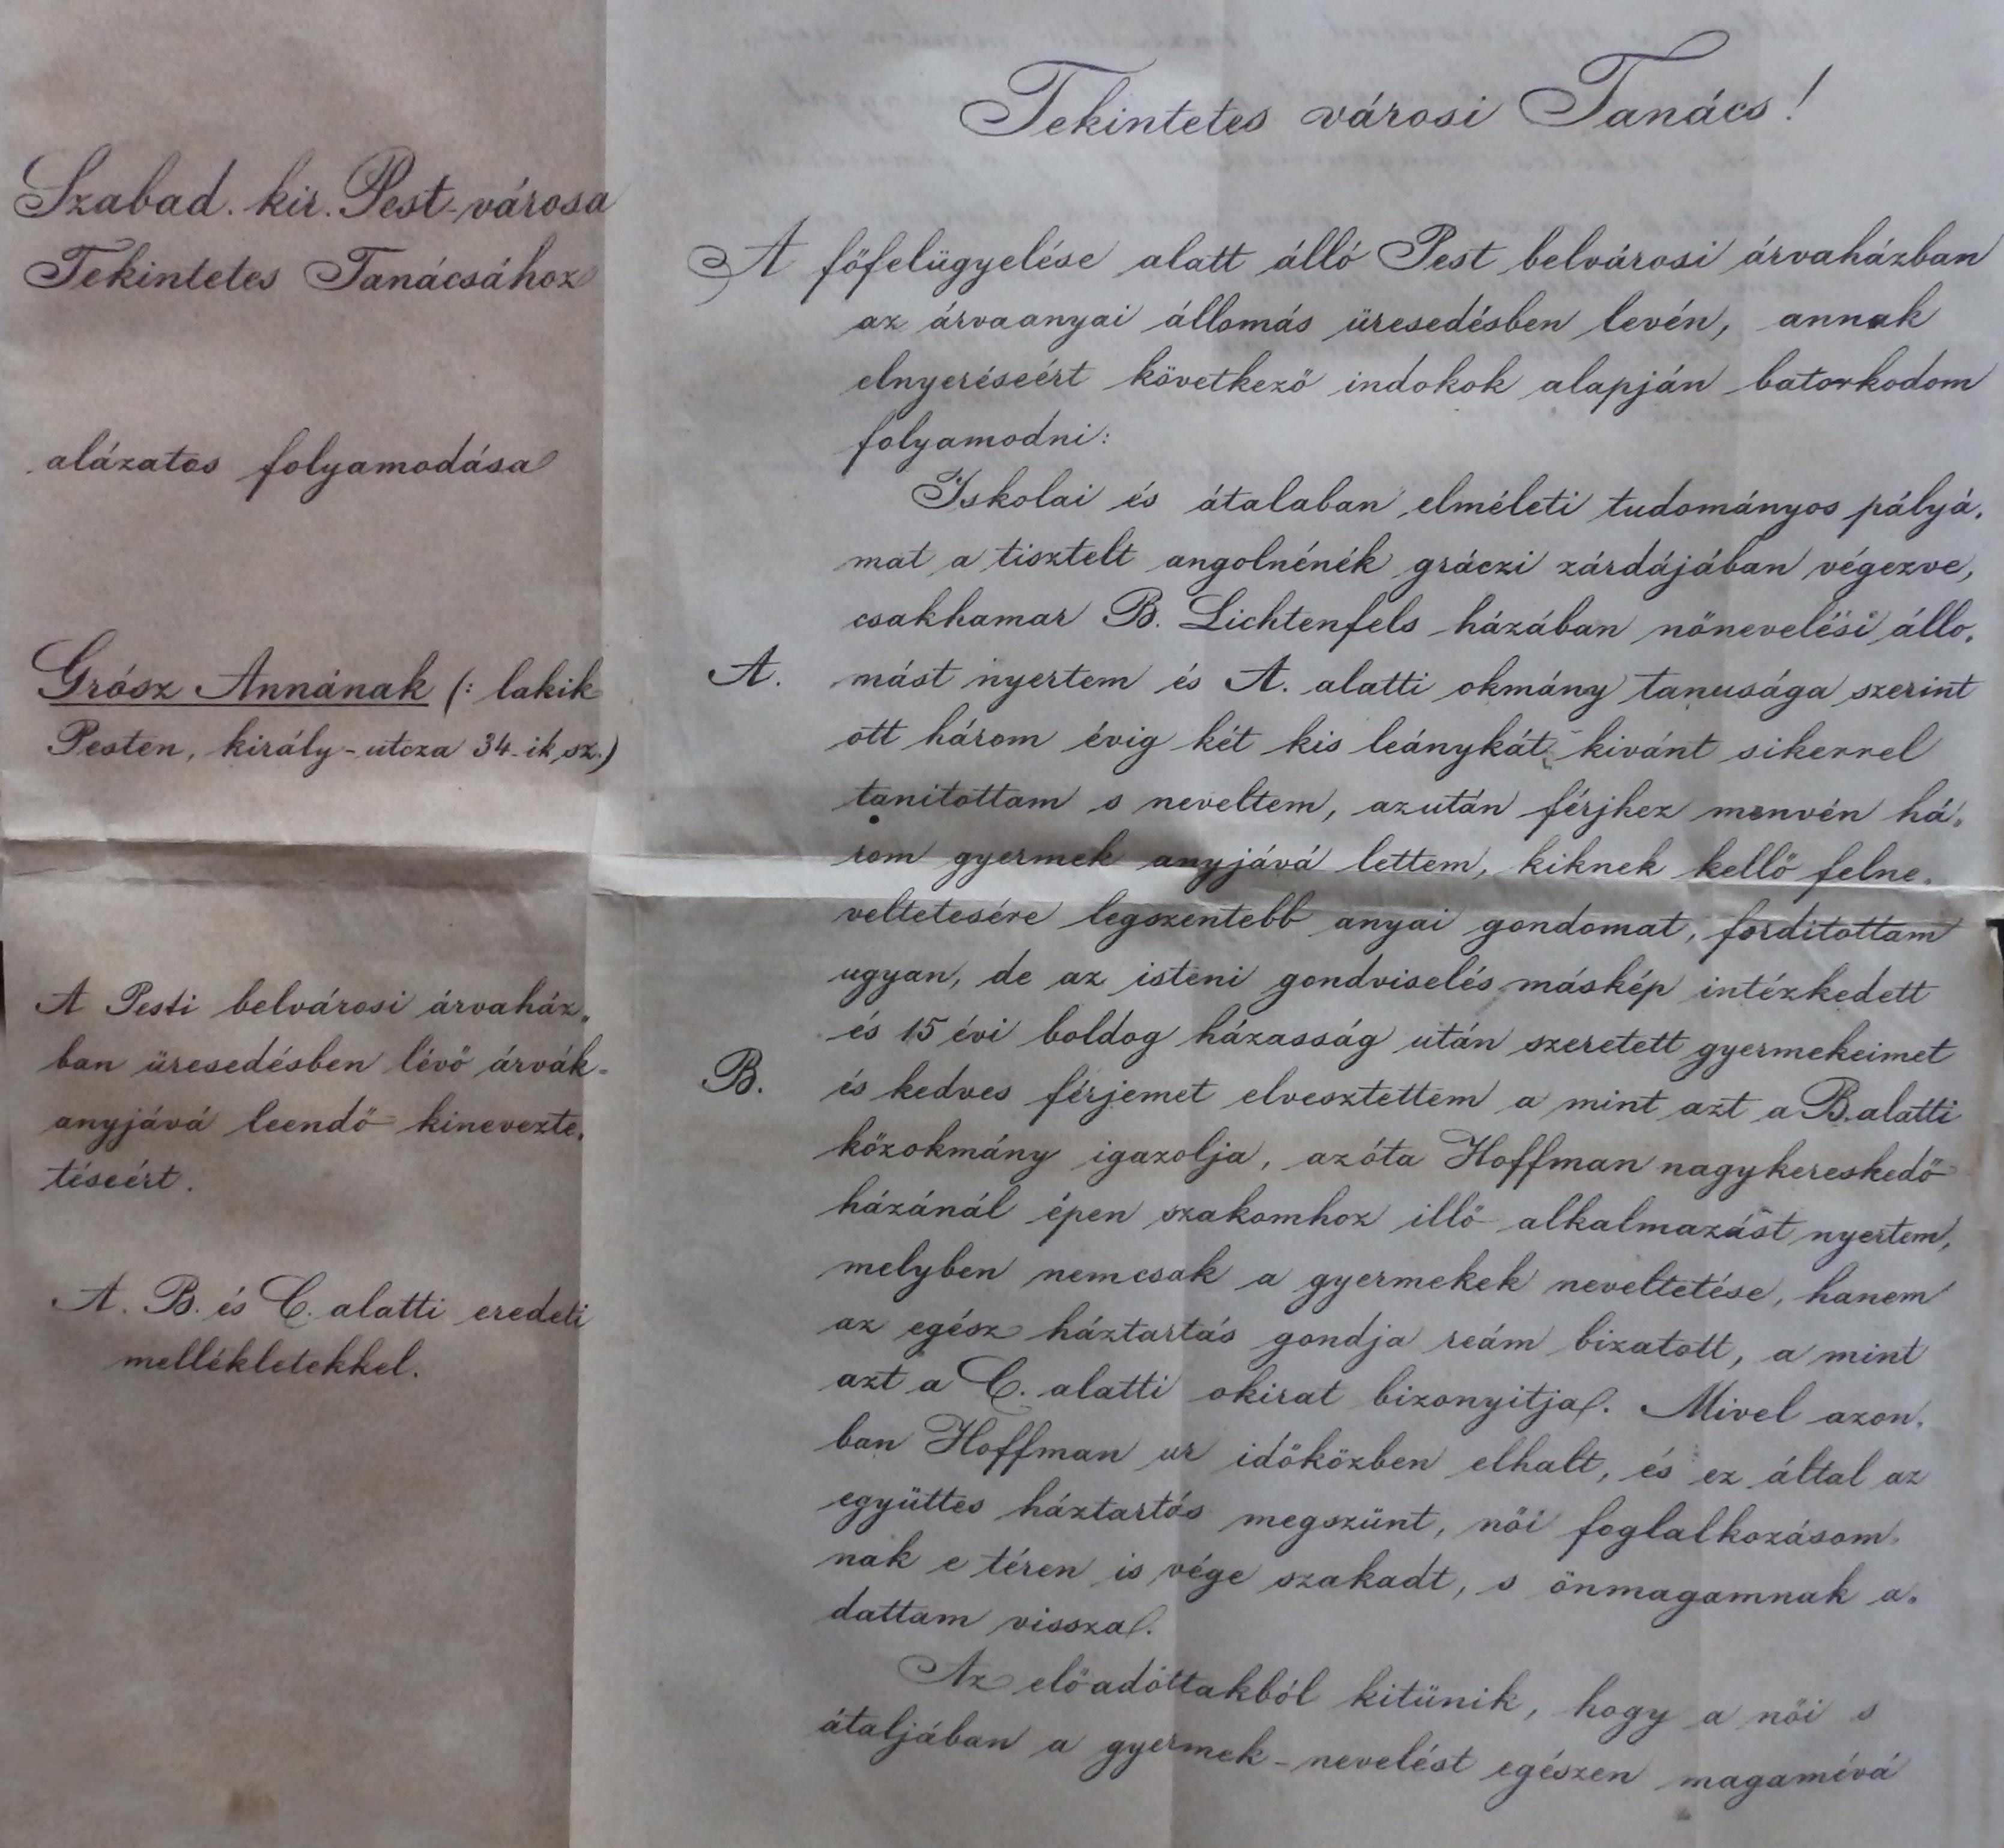 Szabad. kir. Pest-városa
Tekintetes Tanácsához
alázatos folyamodása
Grósz Annának (: lakik
Pesten, király-utcza 34-ik sz.)
A Pesti belvárosi árvaház,
ban üresedésben lévő árvák-
anyjává leendő kinevezte,
téseért.
A. B. és C. alatti eredeti
mellékletekkel.
Tekintetes városi Tanács!
A főfelügyelése alatt álló Pest belvárosi árvaházban
az árvaanyai állomás üresedésben levén, annak
elnyeréseért következő indokok alapján batorkodom
folyamodni:
Iskolai és átalaban elméleti tudományos pályá,
mat a tisztelt angolnénék gráczi zárdájában végezve,
csakhamar B. Lichtenfels házában nőnevelési állo,
A. mást nyertem és A. alatti okmány tanusága szerint
ott három évig két kis leánykát kivánt sikerrel
tanitottam s neveltem, azután férjhez menvén há,
rom gyermek anyjává lettem, kiknek kellő felne,
veltetesére legszentebb anyai gondomat, forditottam
ugyan, de az isteni gondviselés máskép intézkedett
és 15 évi boldog házasság után szeretett gyermekeimet
B. és kedves férjemet elvesztettem a mint azt a B. alatti
közokmány igazolja, azóta Hoffman nagykereskedő
házánál épen szakomhoz illő alkalmazást nyertem,
melyben nemcsak a gyermekek neveltetése, hanem
az egész háztartás gondja reám bizatott, a mint
azt a C. alatti okirat bizonyitja. Mivel azon,
ban Hoffman ur időközben elhalt, és ez által az
együttes háztartás megszünt, női foglalkozásom,
nak e téren is vége szakadt, s önmagamnak a,
dattam vissza.
Az előadottakból kitünik, hogy a női s
átaljában a gyermek-nevelést egészen magamévá